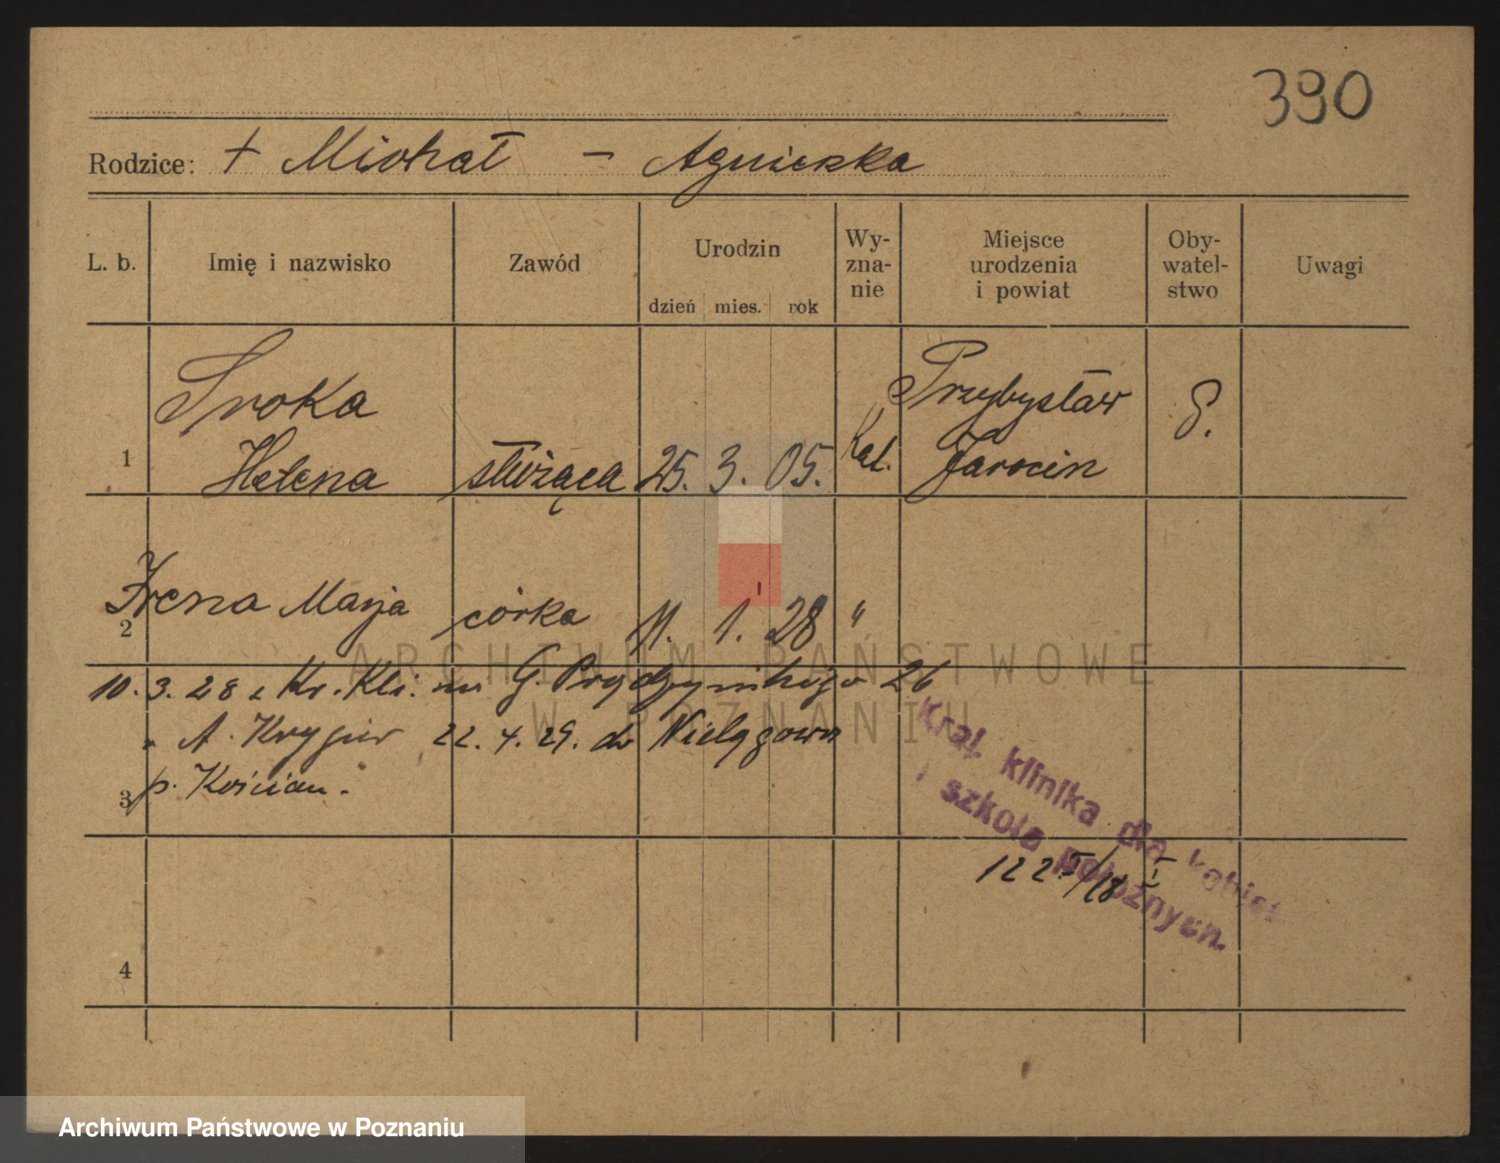 390
Rodzice: + Michał - Agnieszka
L. b. Imię i nazwisko Zawód Urodzin dzień mies. rok Wy- zna- nie Miejsce urodzenia i powiat Oby- watel- stwo Uwagi
Sroka Przybysław
1 Helena służąca 25. 3. 05. Kat. Jarocin
2 Irena Marja córka 11. 1. 28 "
10. 3. 28 z Kr. Kli. na G. Prądzyńskiego 26
" A. Krygier 22. 4. 29. do Wielgowa
3 p. Kościan.
Kraj. klinika dla kobiet
i szkoła położnych.
4
ARCHIWUM PAŃSTWOWE
W POZNANIU
Archiwum Państwowe w Poznaniu